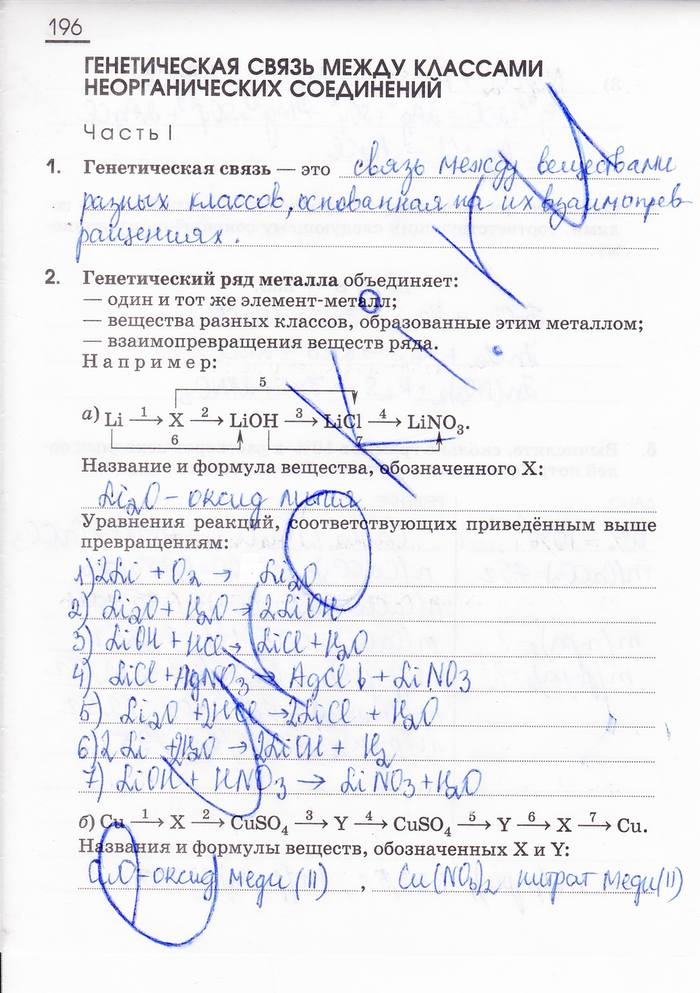 196
ГЕНЕТИЧЕСКАЯ СВЯЗЬ МЕЖДУ КЛАССАМИ
НЕОРГАНИЧЕСКИХ СОЕДИНЕНИЙ
Часть I
1. Генетическая связь — это связь между веществами
разных классов, основанная на их взаимопрев-
ращениях.
2. Генетический ряд металла объединяет:
— один и тот же элемент-металл;
— вещества разных классов, образованные этим металлом;
— взаимопревращения веществ ряда.
Например:
5
а) Li —1→ X —2→ LiOH —3→ LiCl —4→ LiNO₃.
6 7
Название и формула вещества, обозначенного X:
Li₂O - оксид лития
Уравнения реакций, соответствующих приведённым выше
превращениям:
1) 2Li + O₂ → Li₂O
2) Li₂O + H₂O → 2LiOH
3) LiOH + HCl → LiCl + H₂O
4) LiCl + AgNO₃ → AgCl↓ + LiNO3
5) Li₂O + 2HCl → 2LiCl + H₂O
6) 2Li + 2H₂O → 2LiOH + H₂
7) LiOH + HNO₃ → LiNO₃ + H₂O
б) Cu —1→ X —2→ CuSO₄ —3→ Y —4→ CuSO₄ —5→ Y —6→ X —7→ Cu.
Названия и формулы веществ, обозначенных X и Y:
CuO - оксид меди (II) , Cu(NO₃)₂ нитрат меди(II)